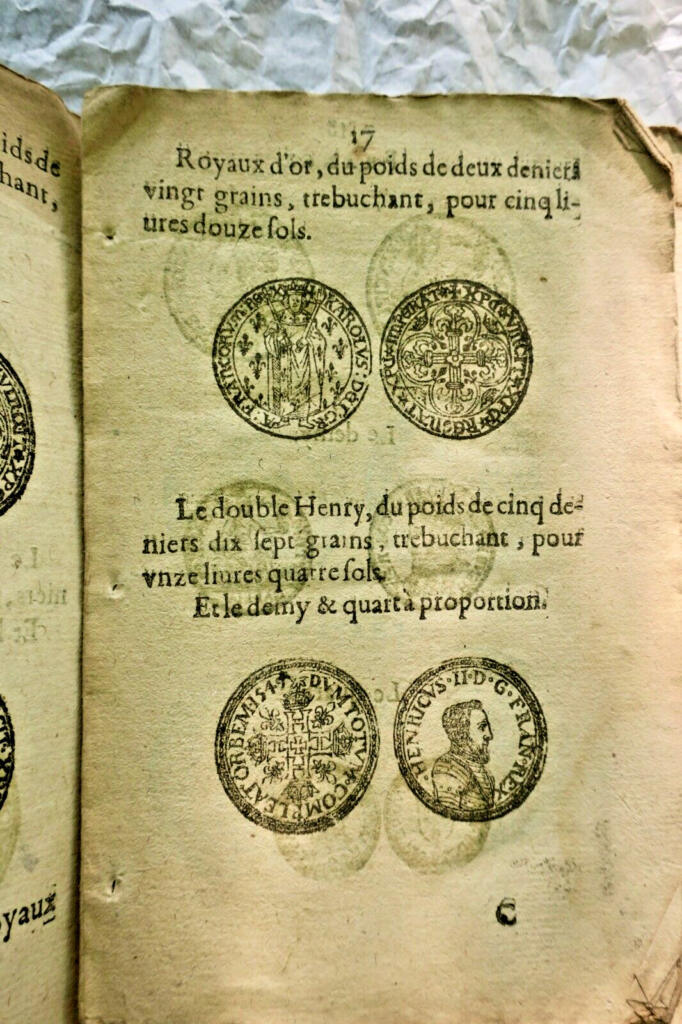 ids de
hant,
oyaux
17
Royaux d'or, du poids de deux deniers
vingt grains, trebuchant, pour cinq li-
ures douze sols.
KAROLVS: DEI: GR
A: FRANCORVM: REX
XPC: VINCIT: XPC: REGNAT: XPC: IMPERAT
Le double Henry, du poids de cinq de-
niers dix sept grains, trebuchant, pour
vnze liures quatre sols.
Et le demy & quart à proportion.
DVM TOTVM COMPLEAT ORBEM
HENRICVS·II·D·G·FRAN·REX
C